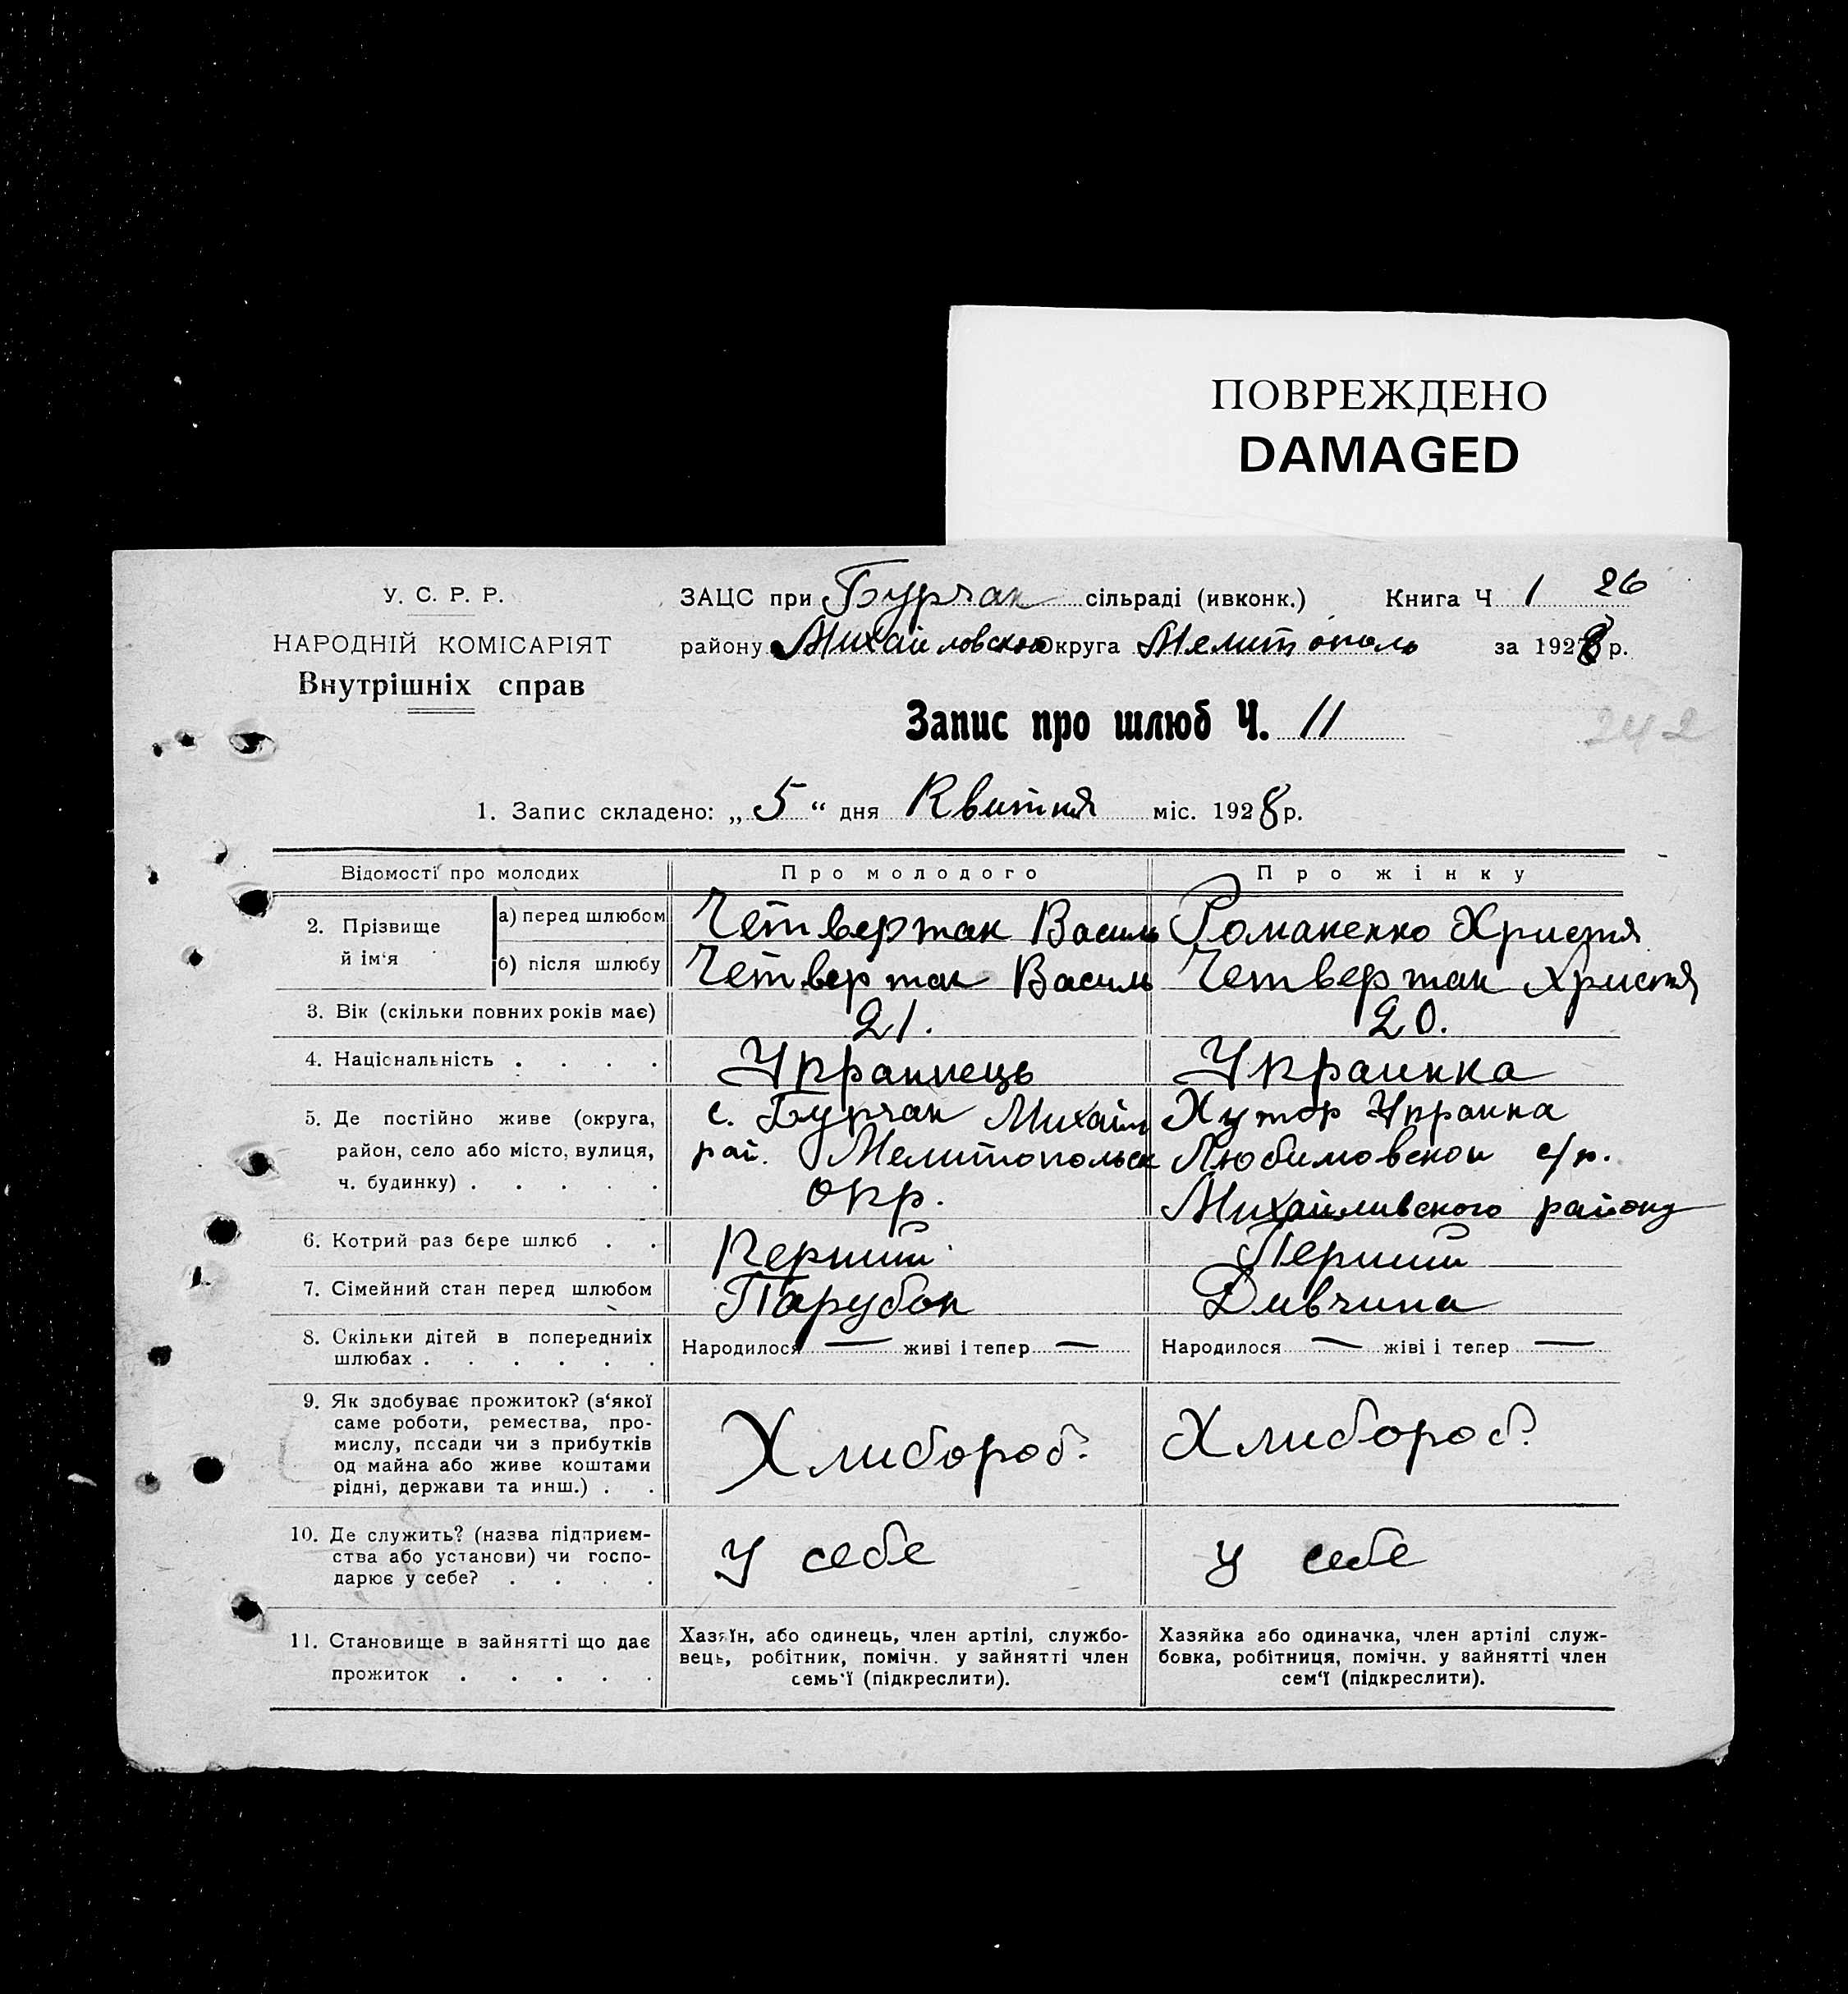 ПОВРЕЖДЕНО
DAMAGED
У. С. Р. Р.
НАРОДНІЙ КОМІСАРІЯТ
Внутрішніх справ
ЗАЦС при Бурчак сільраді (ивконк.) Книга Ч 1 26
району Михайловского округа Мелитополь за 1928 р.
Запис про шлюб Ч. 11
242
1. Запис складено: „ 5 “ дня Квитня міс. 1928 р.
Відомості про молодих Про молодого Про жінку
2. Прізвище й ім‘я
а) перед шлюбом Четвертак Василь Романенко Христя
б) після шлюбу Четвертак Василь Четвертак Христя
3. Вік (скільки повних років має) 21. 20.
4. Національність . . . . Украинець Украинка
5. Де постійно живе (округа, с. Бурчак Михайл Хутор Украинка
район, село або місто, вулиця, рай. Мелитопольск Любимовской с/р.
ч. будинку) . . . . . окр. Михайливского району
6. Котрий раз бере шлюб . . Перший Перший
7. Сімейний стан перед шлюбом Парубок Дивчина
8. Скільки дітей в попередниіх Народилося — живі і тепер — Народилося — жіві і тепер —
шлюбах . . . . . .
9. Як здобуває прожиток? (з‘якої
саме роботи, ремества, про-
мислу, посади чи з прибутків Хлибороб. Хлибороб.
од майна або живе коштами
рідні, держави та инш.) . .
10. Де служить? (назва підприєм-
ства або установи) чи госпо- у себе у себе
дарює у себе? . . . .
11. Становище в зайнятті що дає Хазяїн, або одинець, член артілі, службо- Хазяйка або одиначка, член артілі служ-
прожиток . . . . . вець, робітник, помічн. у зайнятті член бовка, робітниця, помічн. у зайнятті член
семь‘ї (підкреслити). сем‘ї (підкреслити).